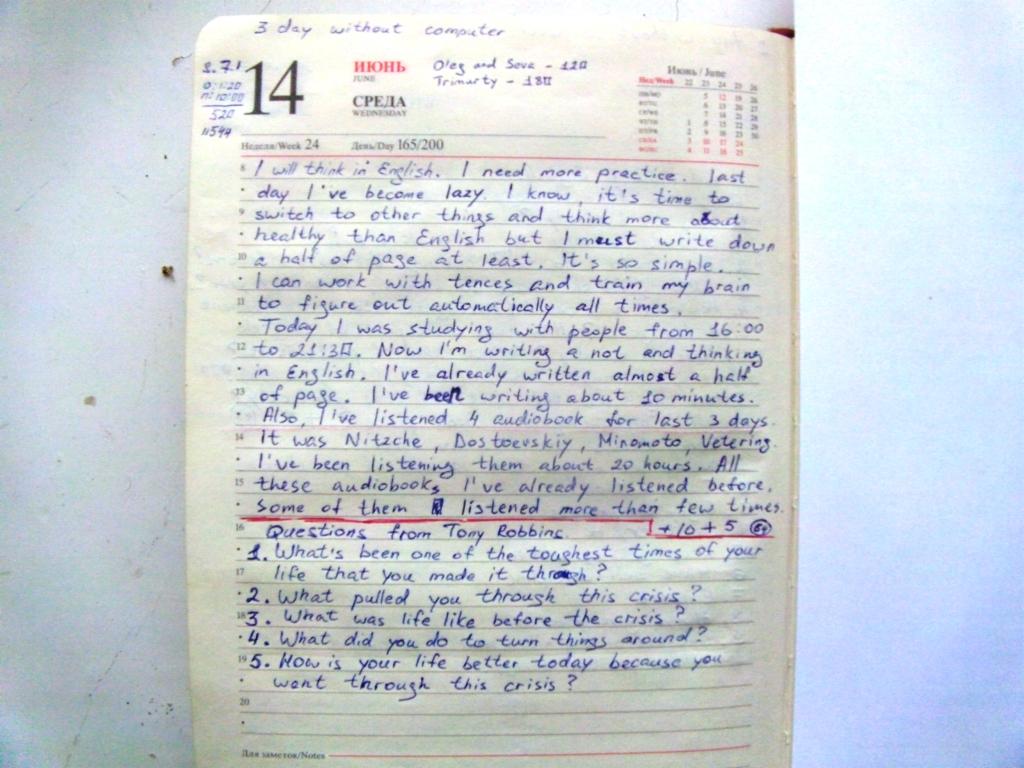 3 day without computer
14
ИЮНЬ
JUNE
СРЕДА
WEDNESDAY
Oleg and Seva - 120
Trimurty - 180
Июнь / June
Нед/Week 22 23 24 25 26
ПН/MO 5 12 19 26
ВТ/TU 6 13 20 27
СР/WE 7 14 21 28
ЧТ/TH 1 8 15 22 29
ПТ/FR 2 9 16 23 30
СБ/SA 3 10 17 24
ВС/SU 4 11 18 25
Неделя/Week 24 День/Day 165/200
8 I will think in English. I need more practice. last
day I've become lazy. I know, it's time to
9 switch to other things and think more about
healthy than English but I must write down
10 a half of page at least. It's so simple.
I can work with tences and train my brain
11 to figure out automatically all times.
Today I was studying with people from 16:00
12 to 21:30. Now I'm writing a not and thinking
in English. I've already written almost a half
13 of page. I've been writing about 10 minutes.
Also, I've listened 4 audiobook for last 3 days.
14 It was Nitzche, Dostoevskiy, Minomoto, Vetering.
I've been listening them about 20 hours. All
15 these audiobooks I've already listened before,
some of them I listened more than few times.
16 Questions from Tony Robbins. +10+5
1. What's been one of the toughest times of your
17 life that you made it through?
2. What pulled you through this crisis?
18 3. What was life like before the crisis?
4. What did you do to turn things around?
19 5. How is your life better today because you
went through this crisis?
20
Для заметок/Notes